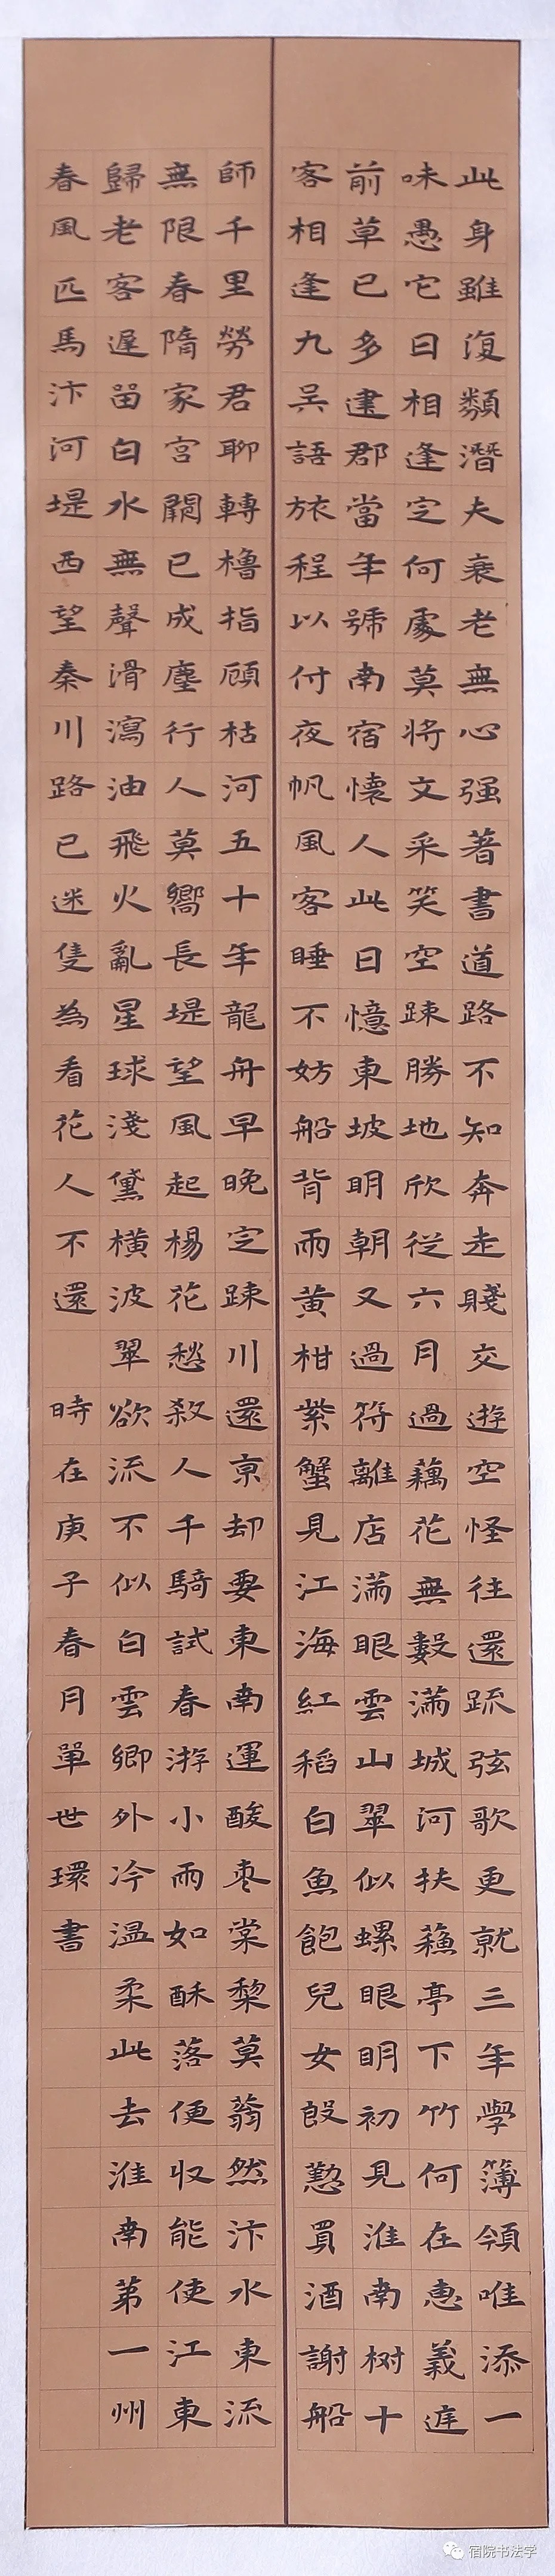 此身雖復類潛夫衰老無心强著書道路不知奔走賤交遊空怪往還疏弦歌更就三年學簿領唯添一
味愚它日相逢定何處莫将文采笑空疎勝地欣從六月過藕花無數滿城河扶蘓亭下竹何在惠義進
前草已多建郡當年號南宿懷人此日憶東坡明朝又過符離店滿眼雲山翠似螺眼明初見淮南树十
客相逢九吴語旅程以付夜帆風客睡不妨船背雨黄柑紫蟹見江海紅稻白魚飽兒女殷懃買酒謝船
師千里勞君聊轉櫓指顾枯河五十年龍舟早晚定疎川還京却要東南運酸枣棠棃莫蓊然汴水東流
無限春隋家宫闕已成塵行人莫嚮長堤望風起楊花愁殺人千騎試春游小雨如酥落便收能使江東
歸老客遲畱白水無聲滑瀉油飛火亂星球淺黛橫波翠欲流不似白雲鄉外冷温柔此去淮南第一州
春風匹馬汴河堤西望秦川路已迷隻為看花人不還
時在庚子春月單世環書
宿院书法学